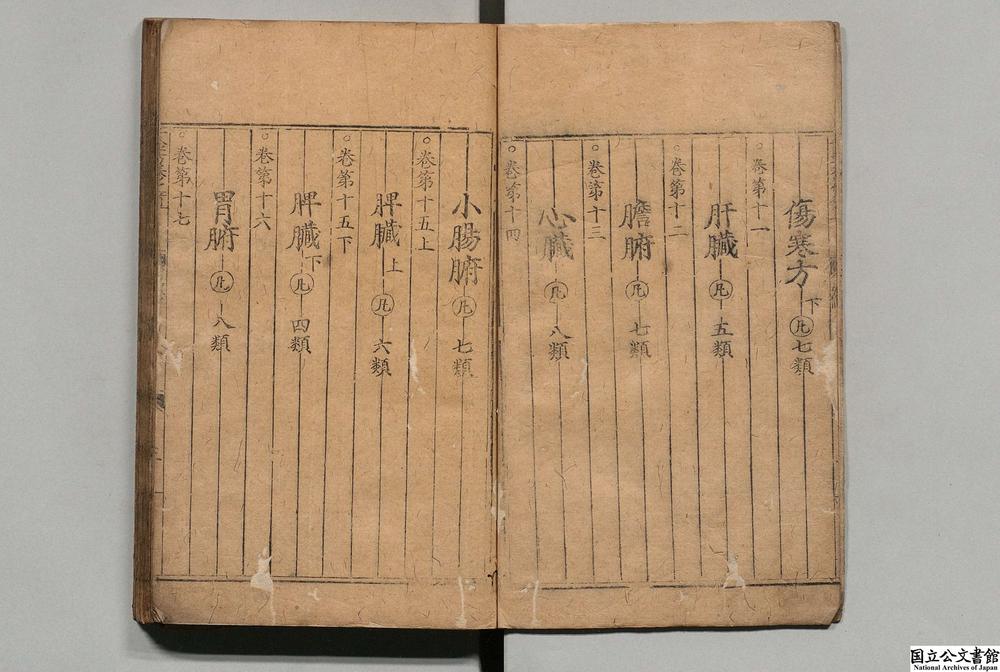 傷寒方下 凡七類
○卷第十一
肝臟 凡五類
○卷第十二
膽腑 凡七類
○卷第十三
心臟 凡八類
○卷第十四
小腸腑 凡七類
○卷第十五上
脾臟上 凡六類
○卷第十五下
脾臟下 凡四類
○卷第十六
胃腑 凡八類
○卷第十七
国立公文書館
National Archives of Japan